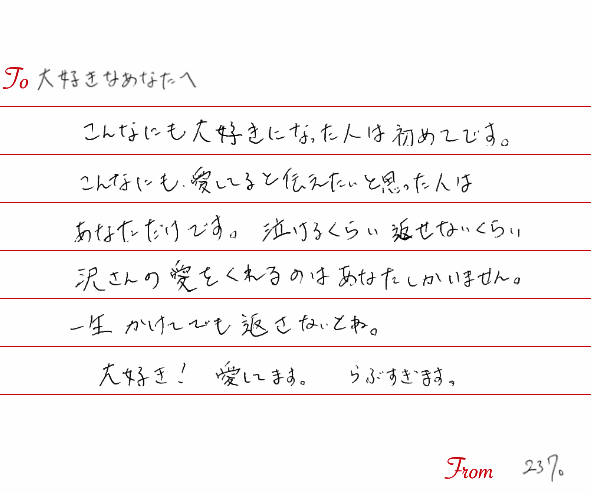 To 大好きなあなたへ
こんなにも大好きになった人は初めてです。
こんなにも、愛してると伝えたいと思った人は
あなただけです。 泣けるくらい 返せないくらい
沢さんの愛をくれるのはあなたしかいません。
一生かけてでも返さないとね。
大好き! 愛してます。 らぶすぎます。
From 23%